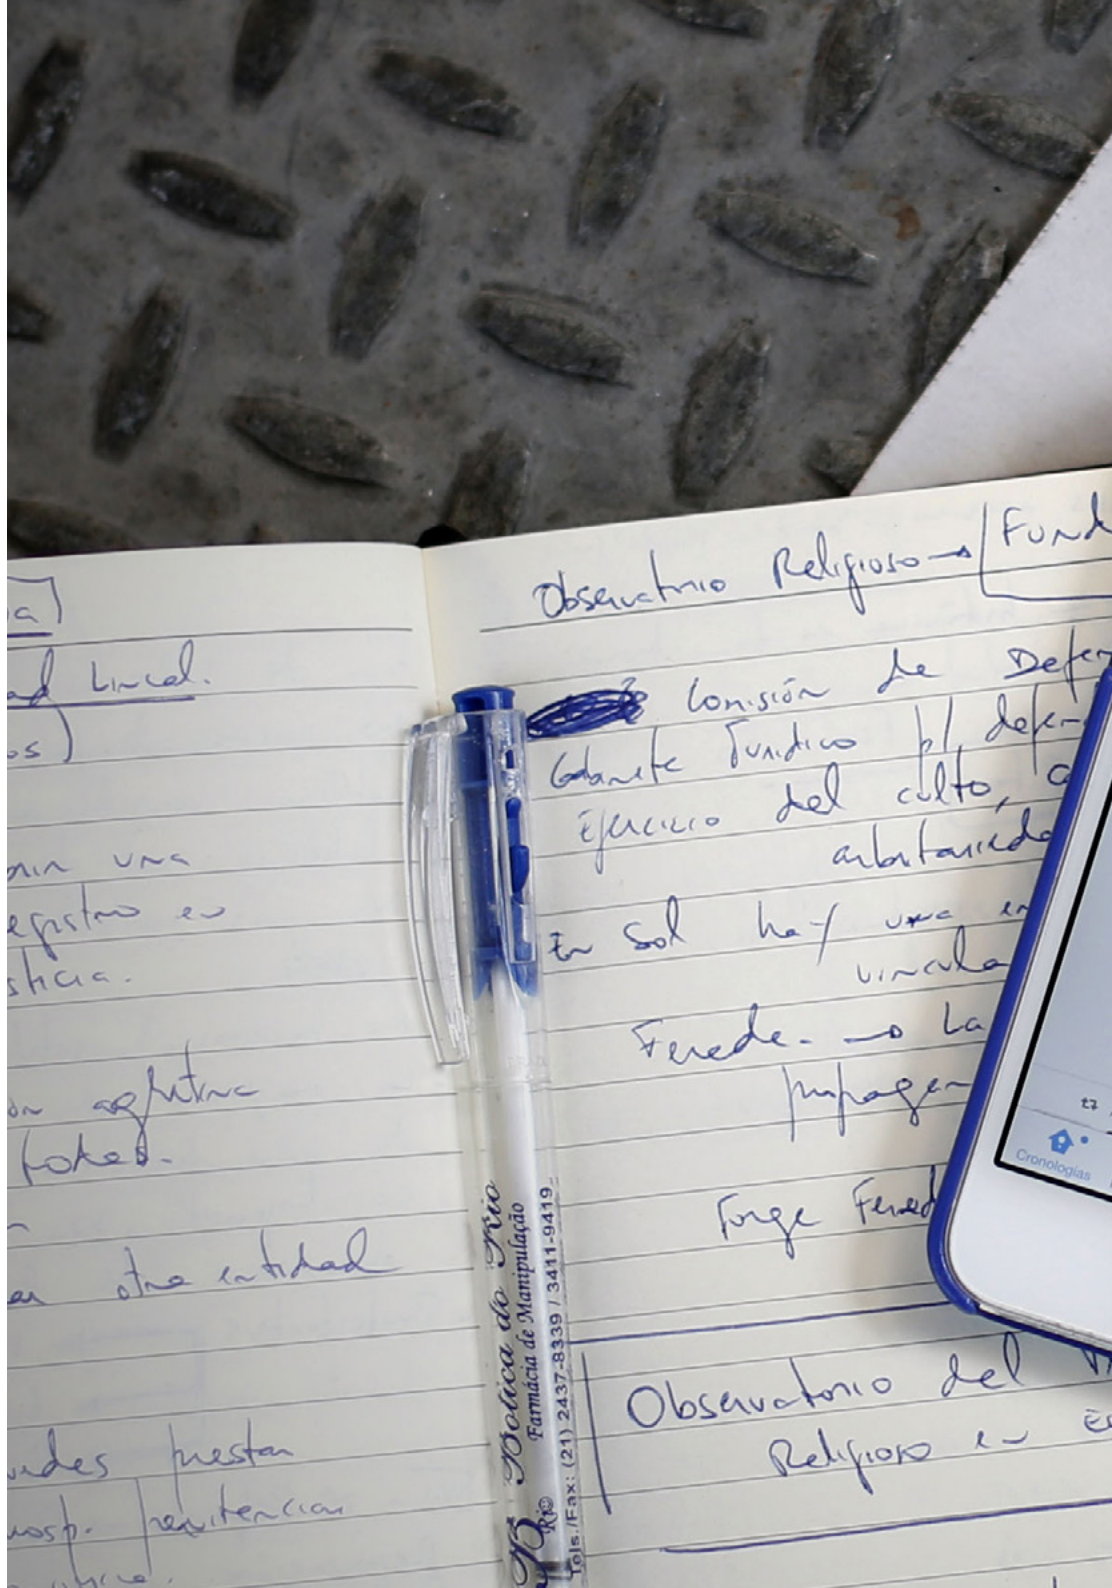 a)
ad Lineal.
os)
una
egistro en
sticia.
aglutina
otra entidad
udes prestar
hosp. penitencias
Observatorio Religioso → Fund
Comisión de Defen
Gabinete Jurídico p/ defen
Ejercicio del culto, a
arbitrarieda
En Sol hay una en
vincula
Ferede. → La
propagan
Jorge Fered
Observatorio del
Religioso en Es
Botica do Rio
Farmácia de Manipulação
Tels./Fax: (21) 2437-8339 / 3411-9419
B Rio
Cronologías